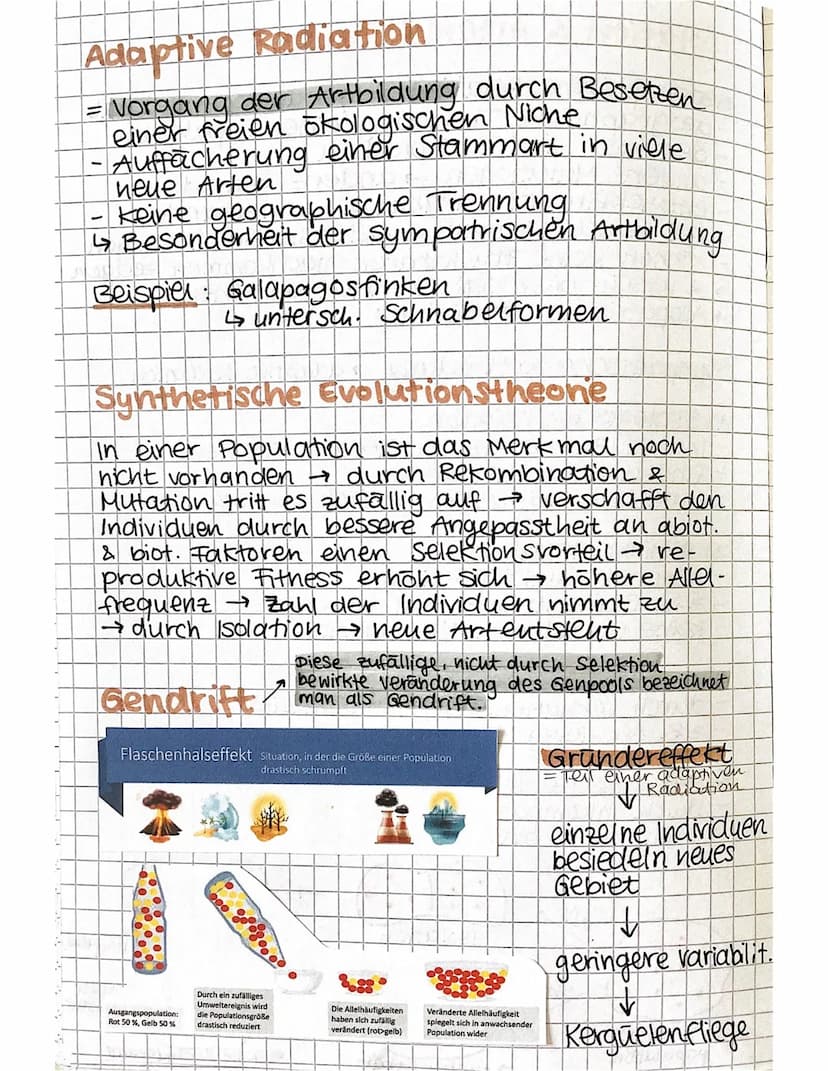 Adaptive Radiation
= Vorgang der Artbildung durch Besetzen
einer freien ökologischen Niche
- Auffächerung einer Stammart in viele
neue Arten
- keine geographische Trennung
↳ Besonderheit der sympatrischen Artbildung
Beispiel: Galapagosfinken
↳ untersch. Schnabelformen
Synthetische Evolutionstheorie
In einer Population ist das Merkmal noch
nicht vorhanden → durch Rekombination &
Mutation tritt es zufällig auf → verschafft den
Individuen durch bessere Angepasstheit an abiot.
& biot. Faktoren einen Selektionsvorteil → re-
produktive Fitness erhöht sich → höhere Allel-
frequenz → Zahl der Individuen nimmt zu
→ durch Isolation → neue Art entsteht
Gendrift ↗
Diese zufällige, nicht durch Selektion
bewirkte Veränderung des Genpools bezeichnet
man als Gendrift.
Flaschenhalseffekt Situation, in der die Größe einer Population
drastisch schrumpft
Ausgangspopulation:
Rot 50 %, Gelb 50 %
Durch ein zufälliges
Umweltereignis wird
die Populationsgröße
drastisch reduziert
Die Allelhäufigkeiten
haben sich zufällig
verändert (rot>gelb)
Veränderte Allelhäufigkeit
spiegelt sich in anwachsender
Population wider
Gründereffekt
= Teil einer adaptiven
Radiation
↓
einzelne Individuen
besiedeln neues
Gebiet
↓
geringere variabilit.
↓
Kerguelenfliege